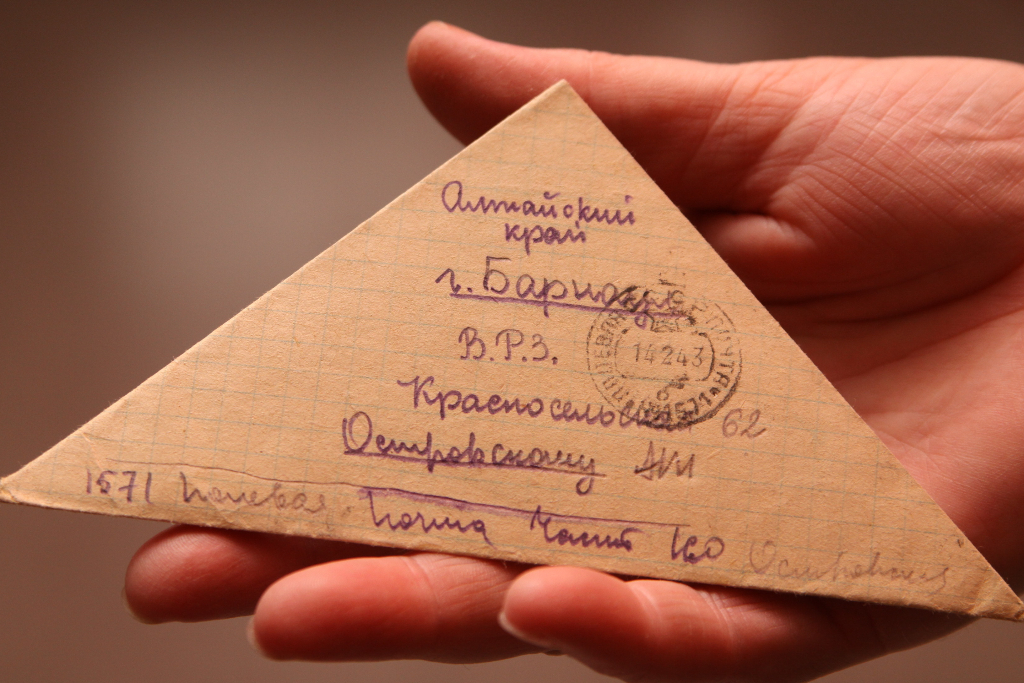 Алтайский
край
г. Барнаул
В.Р.З.
Красносельская 62
Островскому
1571 Полевая Почта Часть 160
ПОЛЕВАЯ ПОЧТА 1571
14 2 43